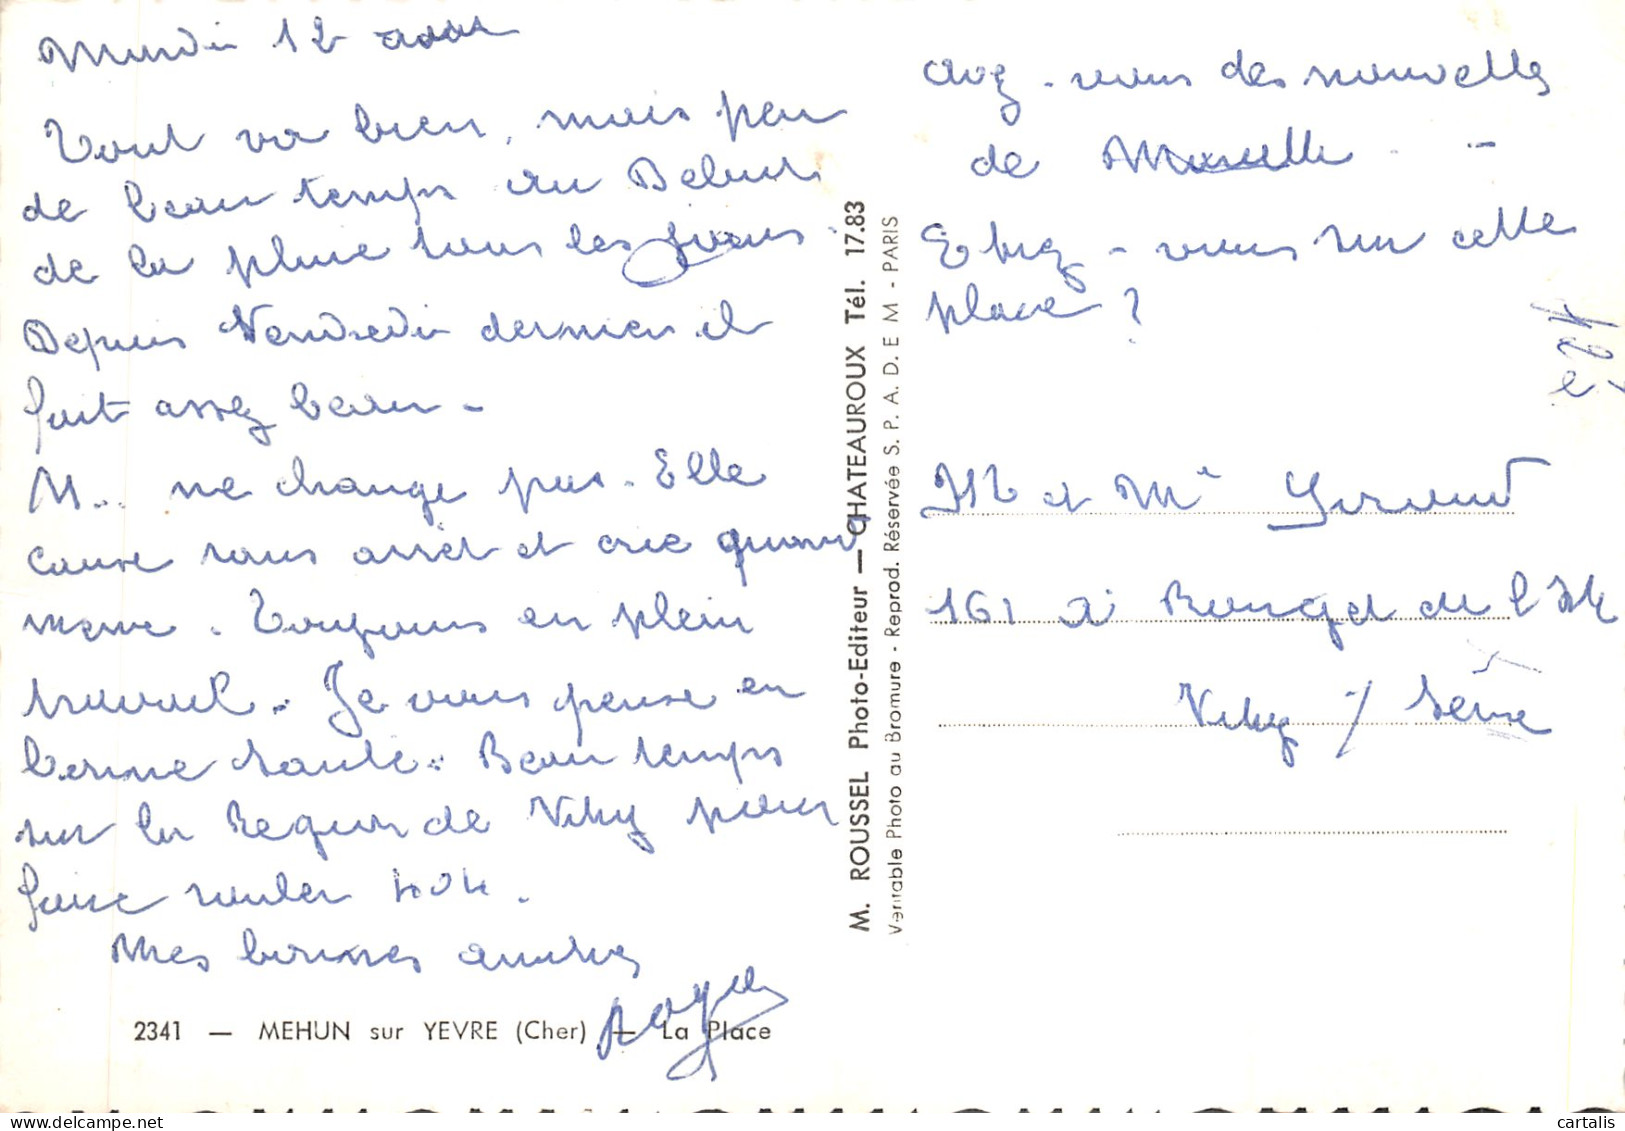 Mardi 12 août
Tout va bien, mais peu
de beau temps au Début.
de la pluie tous les jours.
Depuis Vendredi dernier il
fait assez beau -
M... ne change pas. Elle
cause sans arrêt et crie quand
même. Toujours en plein
travail. Je vous pense en
bonne santé. Beau temps
sur la Region de Vitry pour
faire rouler 404.
Mes bonnes amitiés
Roger
2341 — MEHUN sur YEVRE (Cher) — La Place
M. ROUSSEL Photo-Editeur — CHATEAUROUX Tél. 17.83
Véritable Photo au Bromure - Reprod. Réservée S. P. A. D. E M - PARIS
avez-vous des nouvelles
de Marcelle . -
Etiez-vous sur cette
place ?
Mr et Me Giraud
161 Bd de
Vitry / Seine
cartalis